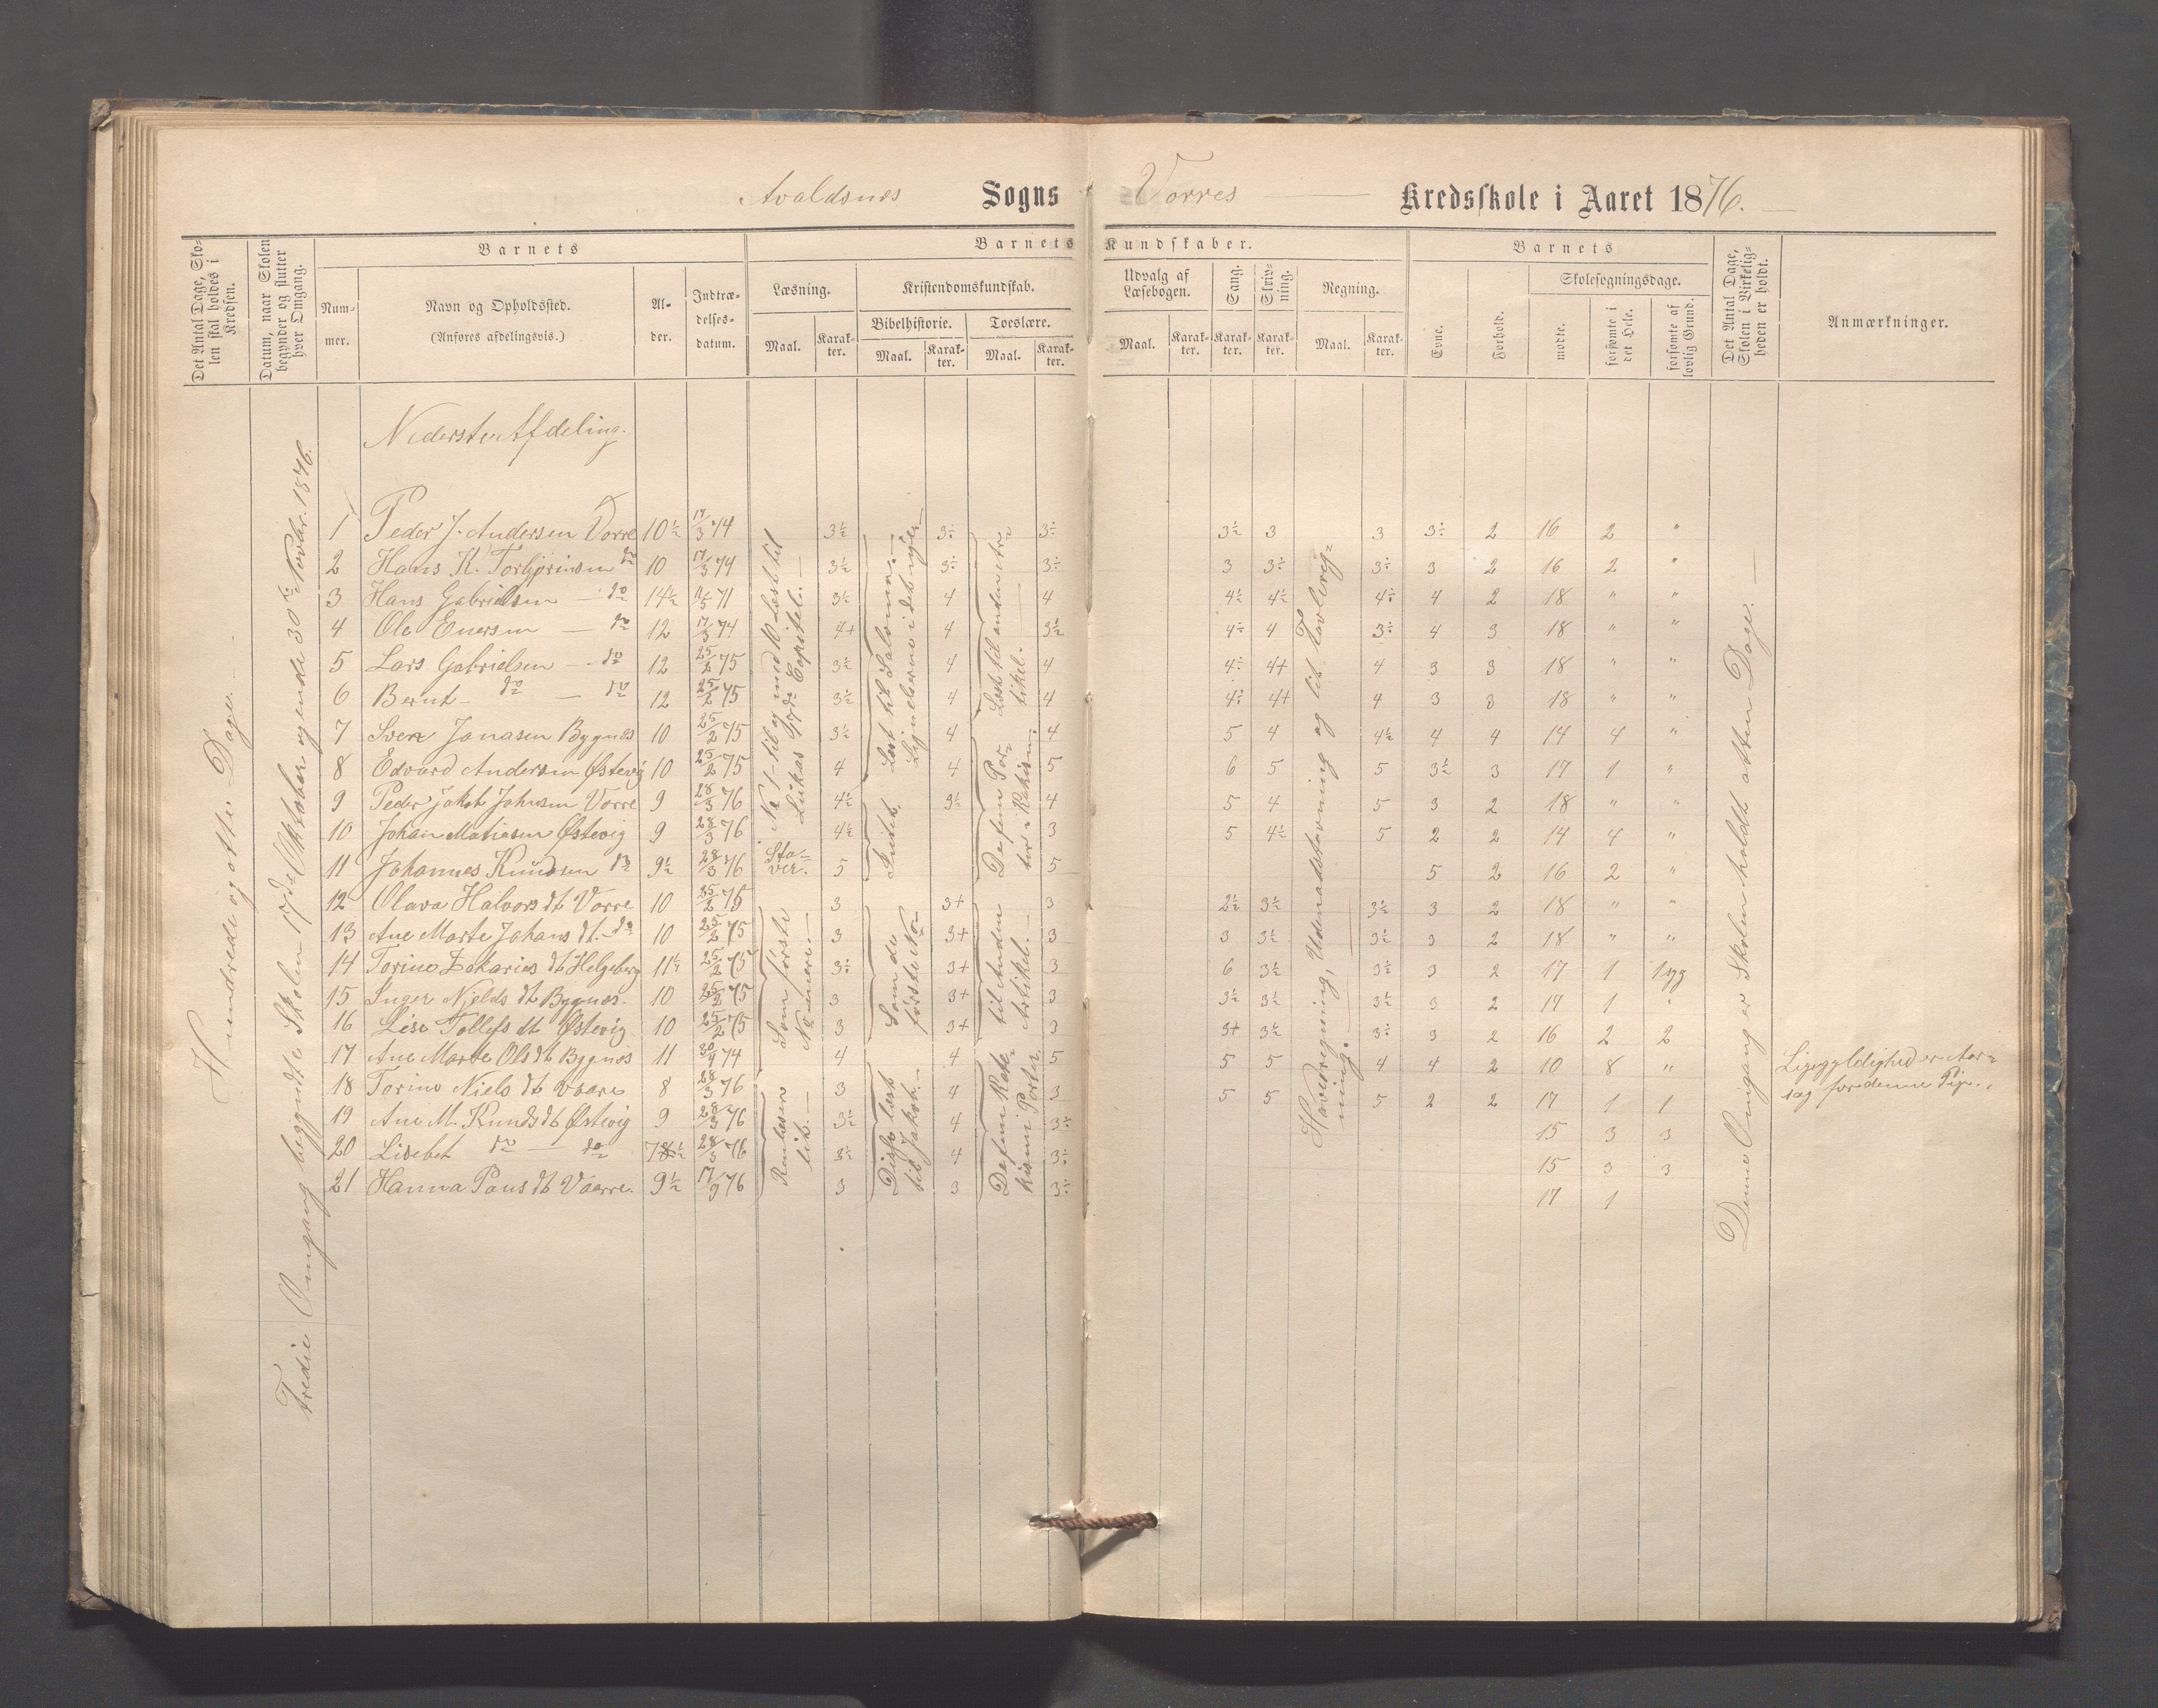 Avaldsnes Sogns Vorres Kredsskole i Aaret 1876.
Det Antal Dage, Skolen skal holdes i Kredsen.
Datum, naar Skolen begynder og slutter hver Omgang.
Barnets
Nummer.
Navn og Opholdssted.
(Anføres afdelingsvis.)
Alder.
Indtrædelsesdatum.
Barnets Kundskaber.
Læsning.
Maal. Karakter.
Kristendomskundskab.
Bibelhistorie.
Maal. Karakter.
Troeslære.
Maal. Karakter.
Udvalg af Læsebogen.
Maal. Karakter.
Sang. Karakter.
Skrivning. Karakter.
Regning.
Maal. Karakter.
Barnets
Evne. Forhold.
Skolesøgningsdage.
mødte. forsømte i det Hele. forsømte af lovlig Grund.
Det Antal Dage, Skolen i Virkeligheden er holdt.
Anmærkninger.
Hundrede og otte Dage.
Tredie Omgang begyndte Skolen 17de Oktober og ende 30te Novbr. 1876.
Nederste Afdeling.
1 Peder J. Andersen Vorre 10½ 17/3 74 3½ 3÷ 3÷ 3½ 3 3 3÷ 2 16 2 "
2 Hans K. Torbjørnsen do 10 17/3 74 3½ 3÷ 3÷ 3 3÷ 3÷ 3 2 16 2 "
3 Hans Gabrielsen do 14½ 71 3½ 4 4 4½ 4½ 4÷ 4 2 18 " "
4 Ole Enersen do 12 17/3 74 4+ 4 3½ 4÷ 4 3÷ 4 3 18 " "
5 Lars Gabrielsen do 12 25/2 75 3½ 4 4 4÷ 4+ 4 3 3 18 " "
6 Bernt do do 12 25/2 75 3½ 4 4 4÷ 4+ 4 3 3 18 " "
7 Sven Jonasen Bygnes 10 25/2 75 3½ 4 4 5 4 4½ 4 4 14 4 "
8 Edvard Andersen Østevig 10 25/2 75 4 4 5 6 5 5 3½ 3 17 1 "
9 Peder Jakob Johnsen Vorre 9 28/3 76 4½ 3½ 4 5 4 5 3 2 18 " "
10 Johan Matiasen Østevig 9 28/3 76 4½ 3 5 4½ 5 2 2 14 4 "
11 Johannes Knudsen do 9½ 28/3 76 5 5 5 2 16 2 "
12 Olava Halvors dt Vorre 10 25/2 75 3 3+ 3 2½ 3½ 3½ 3 2 18 " "
13 Ane Marte Johans dt. do 10 25/2 75 3 3+ 3 3 3½ 3½ 3 2 18 " "
14 Torine Zakarias dt Helgeberg 11½ 25/2 75 3÷ 3+ 3 6 3½ 3½ 3 2 17 1 1
15 Inger Nields dt Bygnes. 10 25/2 75 3 3+ 3 3½ 3½ 3½ 3 2 17 1 "
16 Lise Tollefs dt Østevig 10 25/2 75 3 3+ 3 3+ 3½ 3÷ 3 2 16 2 2
17 Ane Marte Ols dt Bygnes 11 74 4 4 5 5 5 4 4 2 10 8 "
18 Torine Niels dt Vaare 8 28/3 76 3 4 3 5 5 5 2 2 17 1 1
19 Ane M. Knuds dt Østevig 9 28/3 76 3½ 4 3÷ 15 3 3
20 Lisebet do do 28/3 76 3½ 4 3÷ 15 3 3
21 Hanna Pous dt Vaarre. 9½ 17/9 76 3 3 3÷ 17 1
No 1 til og med 10 læst til Lukas 17de Capitel.
Staver.
Som første Numere.
Læst til Salomon. Lignelserne i det nye
Som de første No
til Jakob.
Læst til anden Artikel.
De fem Parter i Katekism.
til Anden Artikel.
De fem Katekismi Parter.
Hovedregning, Udenadstavning og lit Tavleregning.
Denne Omgang er Skolen holdt atten Dage.
Ligegyldighed er Aarsag for denne Pige.